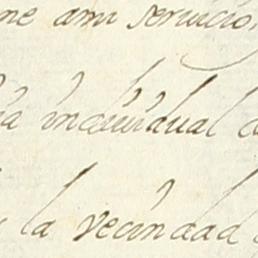 ne ami servicio
a individual d
la vecindad